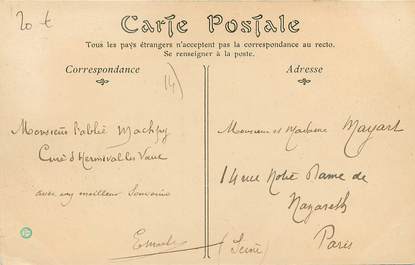 20 €
Carte Postale
Tous les pays étrangers n'acceptent pas la correspondance au recto.
Se renseigner à la poste.
Correspondance
Adresse
14)
Monsieur l'abbé
Curé d'Hermival les Vaux
avec my meilleur Souvenir
Monsieur et Madame Mayart
14 rue Notre Dame de
Nazareth
(Seine) Paris